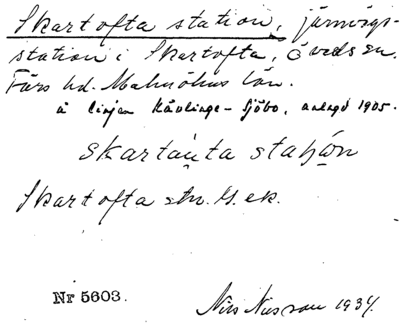 Skartofta station, järnvägs-
station i Skartofta, Öveds sn.
Färs hd. Malmöhus län.
å linjen Kävlinge - Sjöbo, anlagd 1905.
skartata stašon
Skartofta stn. G. ek.
Nr 5603.
Nils Nilsson 1934.